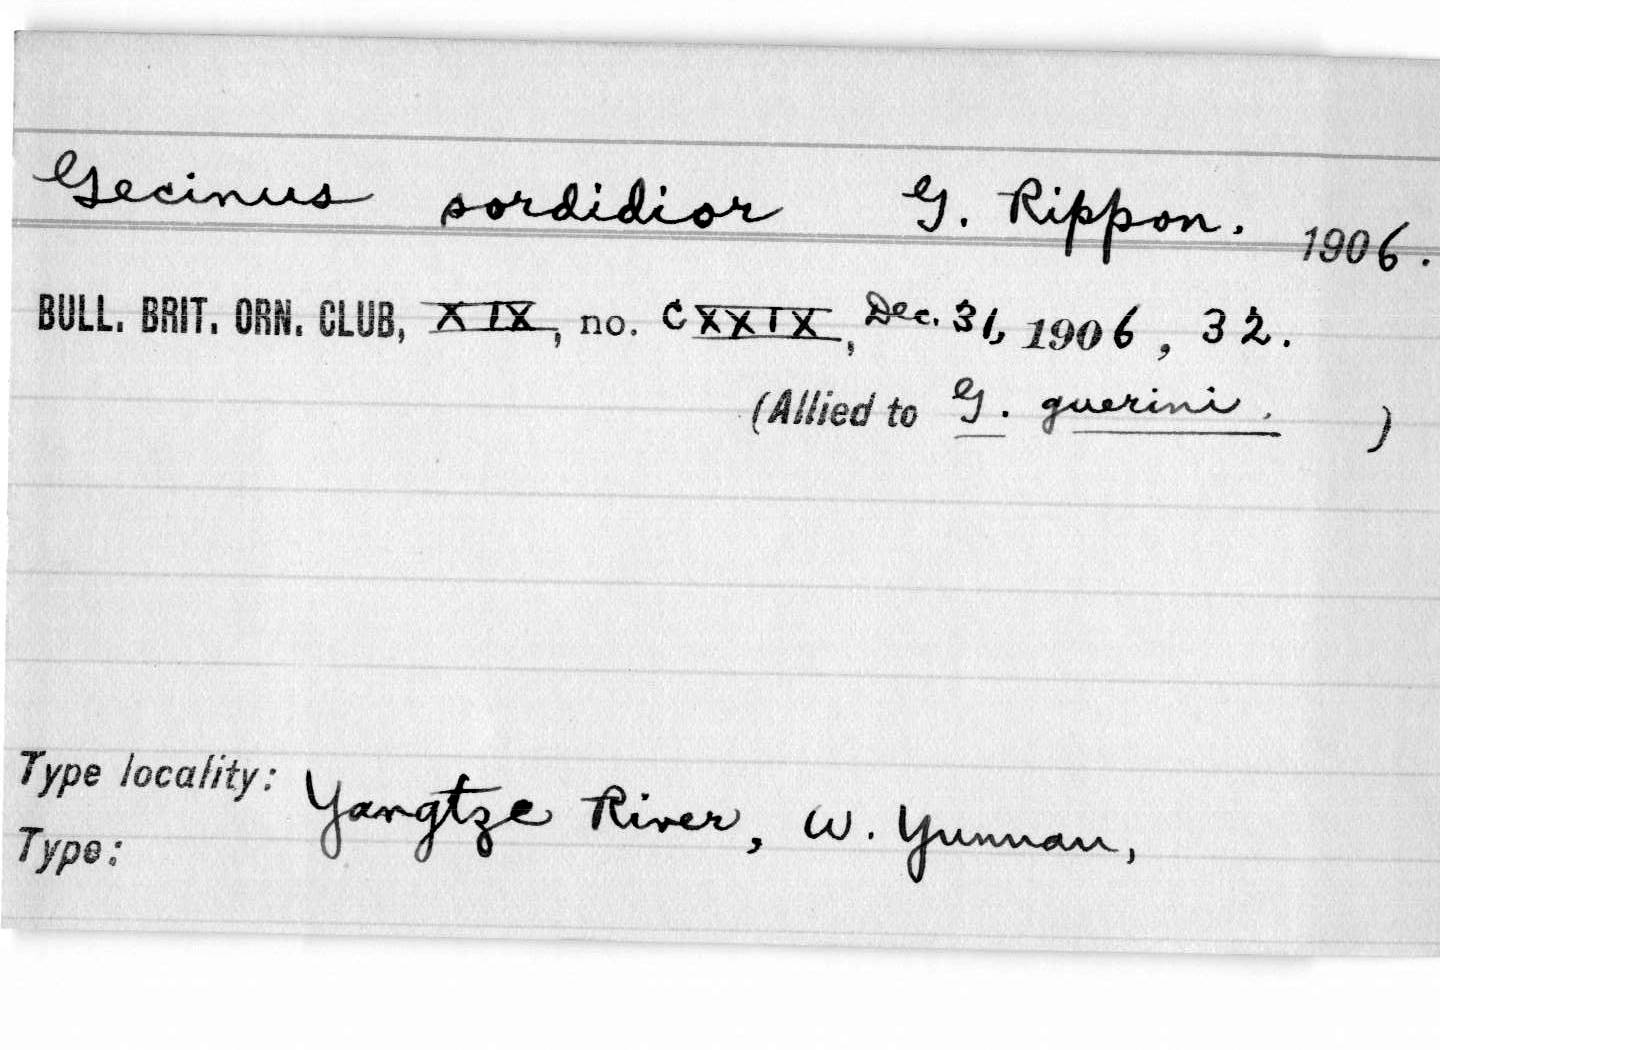 Gecinus sordidior G. Rippon. 1906.
BULL. BRIT. ORN. CLUB, XIX, no. CXXIX, Dec. 31, 1906, 32.
(Allied to G. guerini. )
Type locality: Yangtze River, W. Yunnan,
Type: